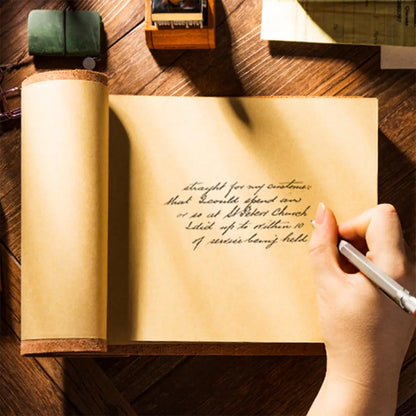 straight for my customer
that I could spend an
or so at St Peters Church
I did up to within 10
of service being held